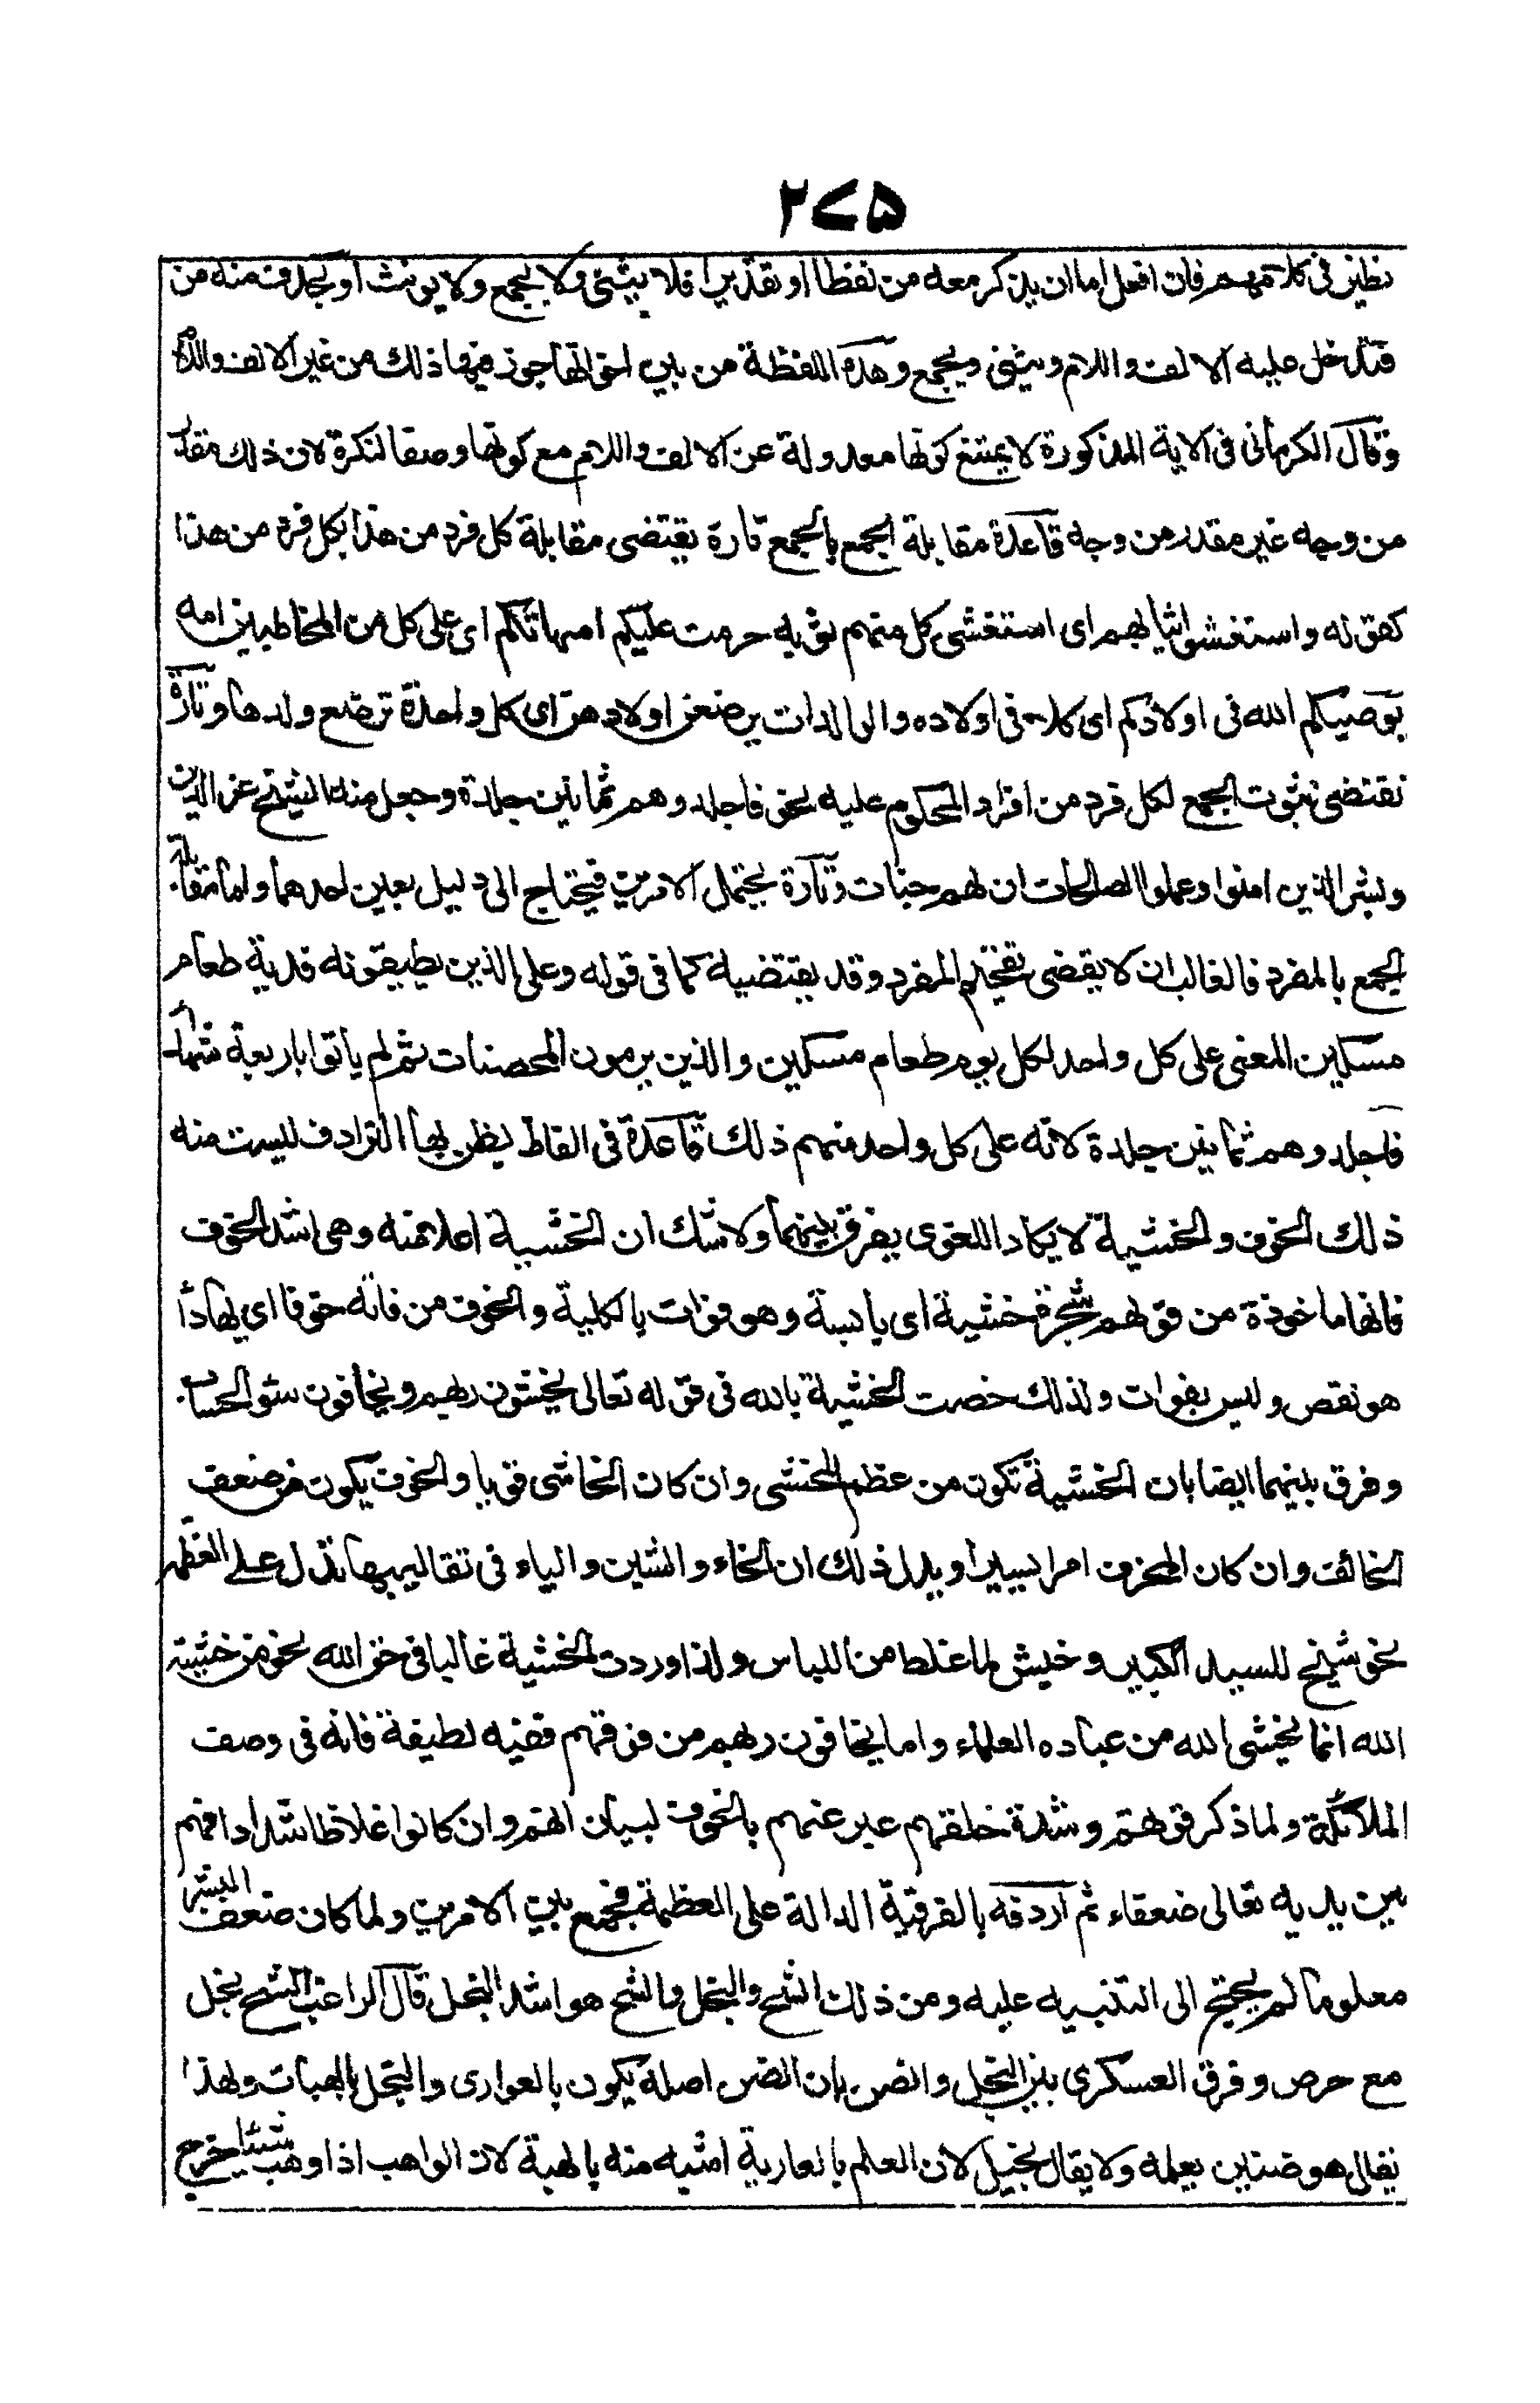 ٢٧٥
نظير فى كلامهم فان افعل اما ان يذكر معه من لفظا او تقديرا فلا يثنى ولا يجمع ولا يونث او يحذف منه من
فتدخل عليه الالف واللام ويثنى ويجمع وهذه اللفظة من بين اخواتها جوز فيها ذلك من غير الالف واللام
وقال الكرمانى فى الاية المذكورة لا يمتنع كونها معدولة عن الالف واللام مع كونها وصفا لنكرة لان ذلك مقدر
من وجه غير مقدر من وجه قاعدة مقابلة الجمع بالجمع تارة يقتضى مقابلة كل فرد من هذا بكل فرد من هذا
كقوله واستغشوا ثيابهم اى استغشى كل منهم ثوبه حرمت عليكم امهاتكم اى على كل من المخاطبين امه
يوصيكم الله فى اولادكم اى كلا فى اولاده والوالدات يرضعن اولادهن اى كل واحدة ترضع ولدها وتارة
تقتضى ثبوت الجمع لكل فرد من افراد المحكوم عليه نحو فاجلدوهم ثمانين جلدة وجعل منه الشيخ عز الدين
وبشر الذين امنوا وعملوا الصالحات ان لهم جنات وتارة يحتمل الامرين فيحتاج الى دليل يعين احدهما واما مقابلة
الجمع بالمفرد فالغالب ان لا يقضى تعميم المفرد وقد يقتضيه كما فى قوله وعلى الذين يطيقونه فدية طعام
مسكين المعنى على كل واحد لكل يوم طعام مسكين والذين يرمون المحصنات ثم لم ياتوا باربعة شهداء
فاجلدوهم ثمانين جلدة لانه على كل واحد منهم ذلك قاعدة فى الفاظ يظن بها الترادف ليست منه
ذلك الخوف والخشية لا يكاد اللغوى يفرق بينهما ولا شك ان الخشية اعلا منه وهى اشد الخوف
فانها ماخوذة من قولهم شجرة خشية اى يابسة وهو فوات بالكلية والخوف من ناقة خوفا اى بها داء
هو نقص وليس بفوات ولذلك خصت الخشية بالله فى قوله تعالى يخشون ربهم ويخافون سوء الحساب
وفرق بينهما ايضا بان الخشية تكون من عظم المخشى وان كان الخاشى قويا والخوف يكون من ضعف
الخائف وان كان المخوف امرا يسيرا ويدل ذلك ان الخاء والشين والياء فى تقاليبها تدل على العظمة
نحو شيخ للسيد الكبير وخيش لما غلظ من اللباس ولذا وردت الخشية غالبا فى حق الله نحو من خشية
الله انما يخشى الله من عباده العلماء واما يخافون ربهم من فوقهم ففيه لطيفة فانه فى وصف
الملائكة ولما ذكر قوتهم وشدة خلقهم عبر عنهم بالخوف لبيان انهم وان كانوا غلاظا شدادا فهم
بين يديه تعالى ضعفاء ثم اردفه بالفوقية الدالة على العظمة فجمع بين الامرين ولما كان ضعف البشر
معلوما لم يحتج الى التنبيه عليه ومن ذلك الشح والبخل والشح هو اشد البخل قال الراغب الشح بخل
مع حرص وفرق العسكرى بين البخل والضن بان الضن اصله يكون بالعوارى والبخل بالهبات ولهذا
يقال هو ضنين بعلمه ولا يقال بخيل لان العلم بالعارية اشبه منه بالهبة لان الواهب اذا وهب شيئا خرج